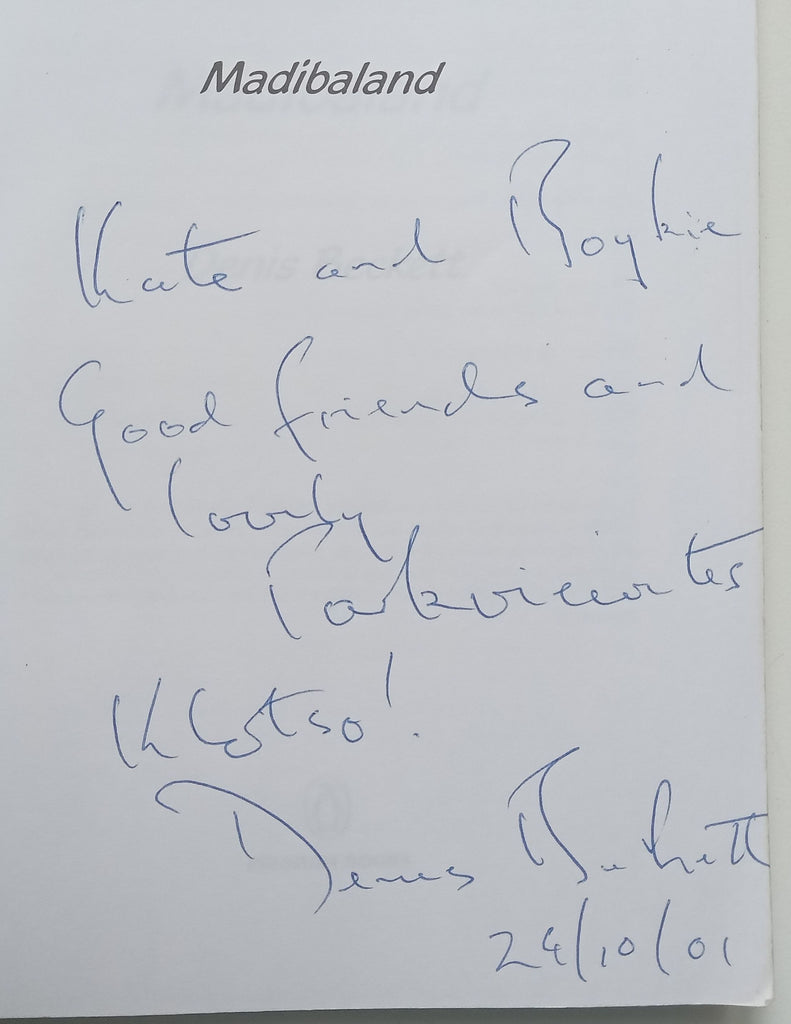 Madibaland
Kate and Boykie
Good friends and
lovely
Parkviewites
Khotso!
Denis Beckett
24/10/01